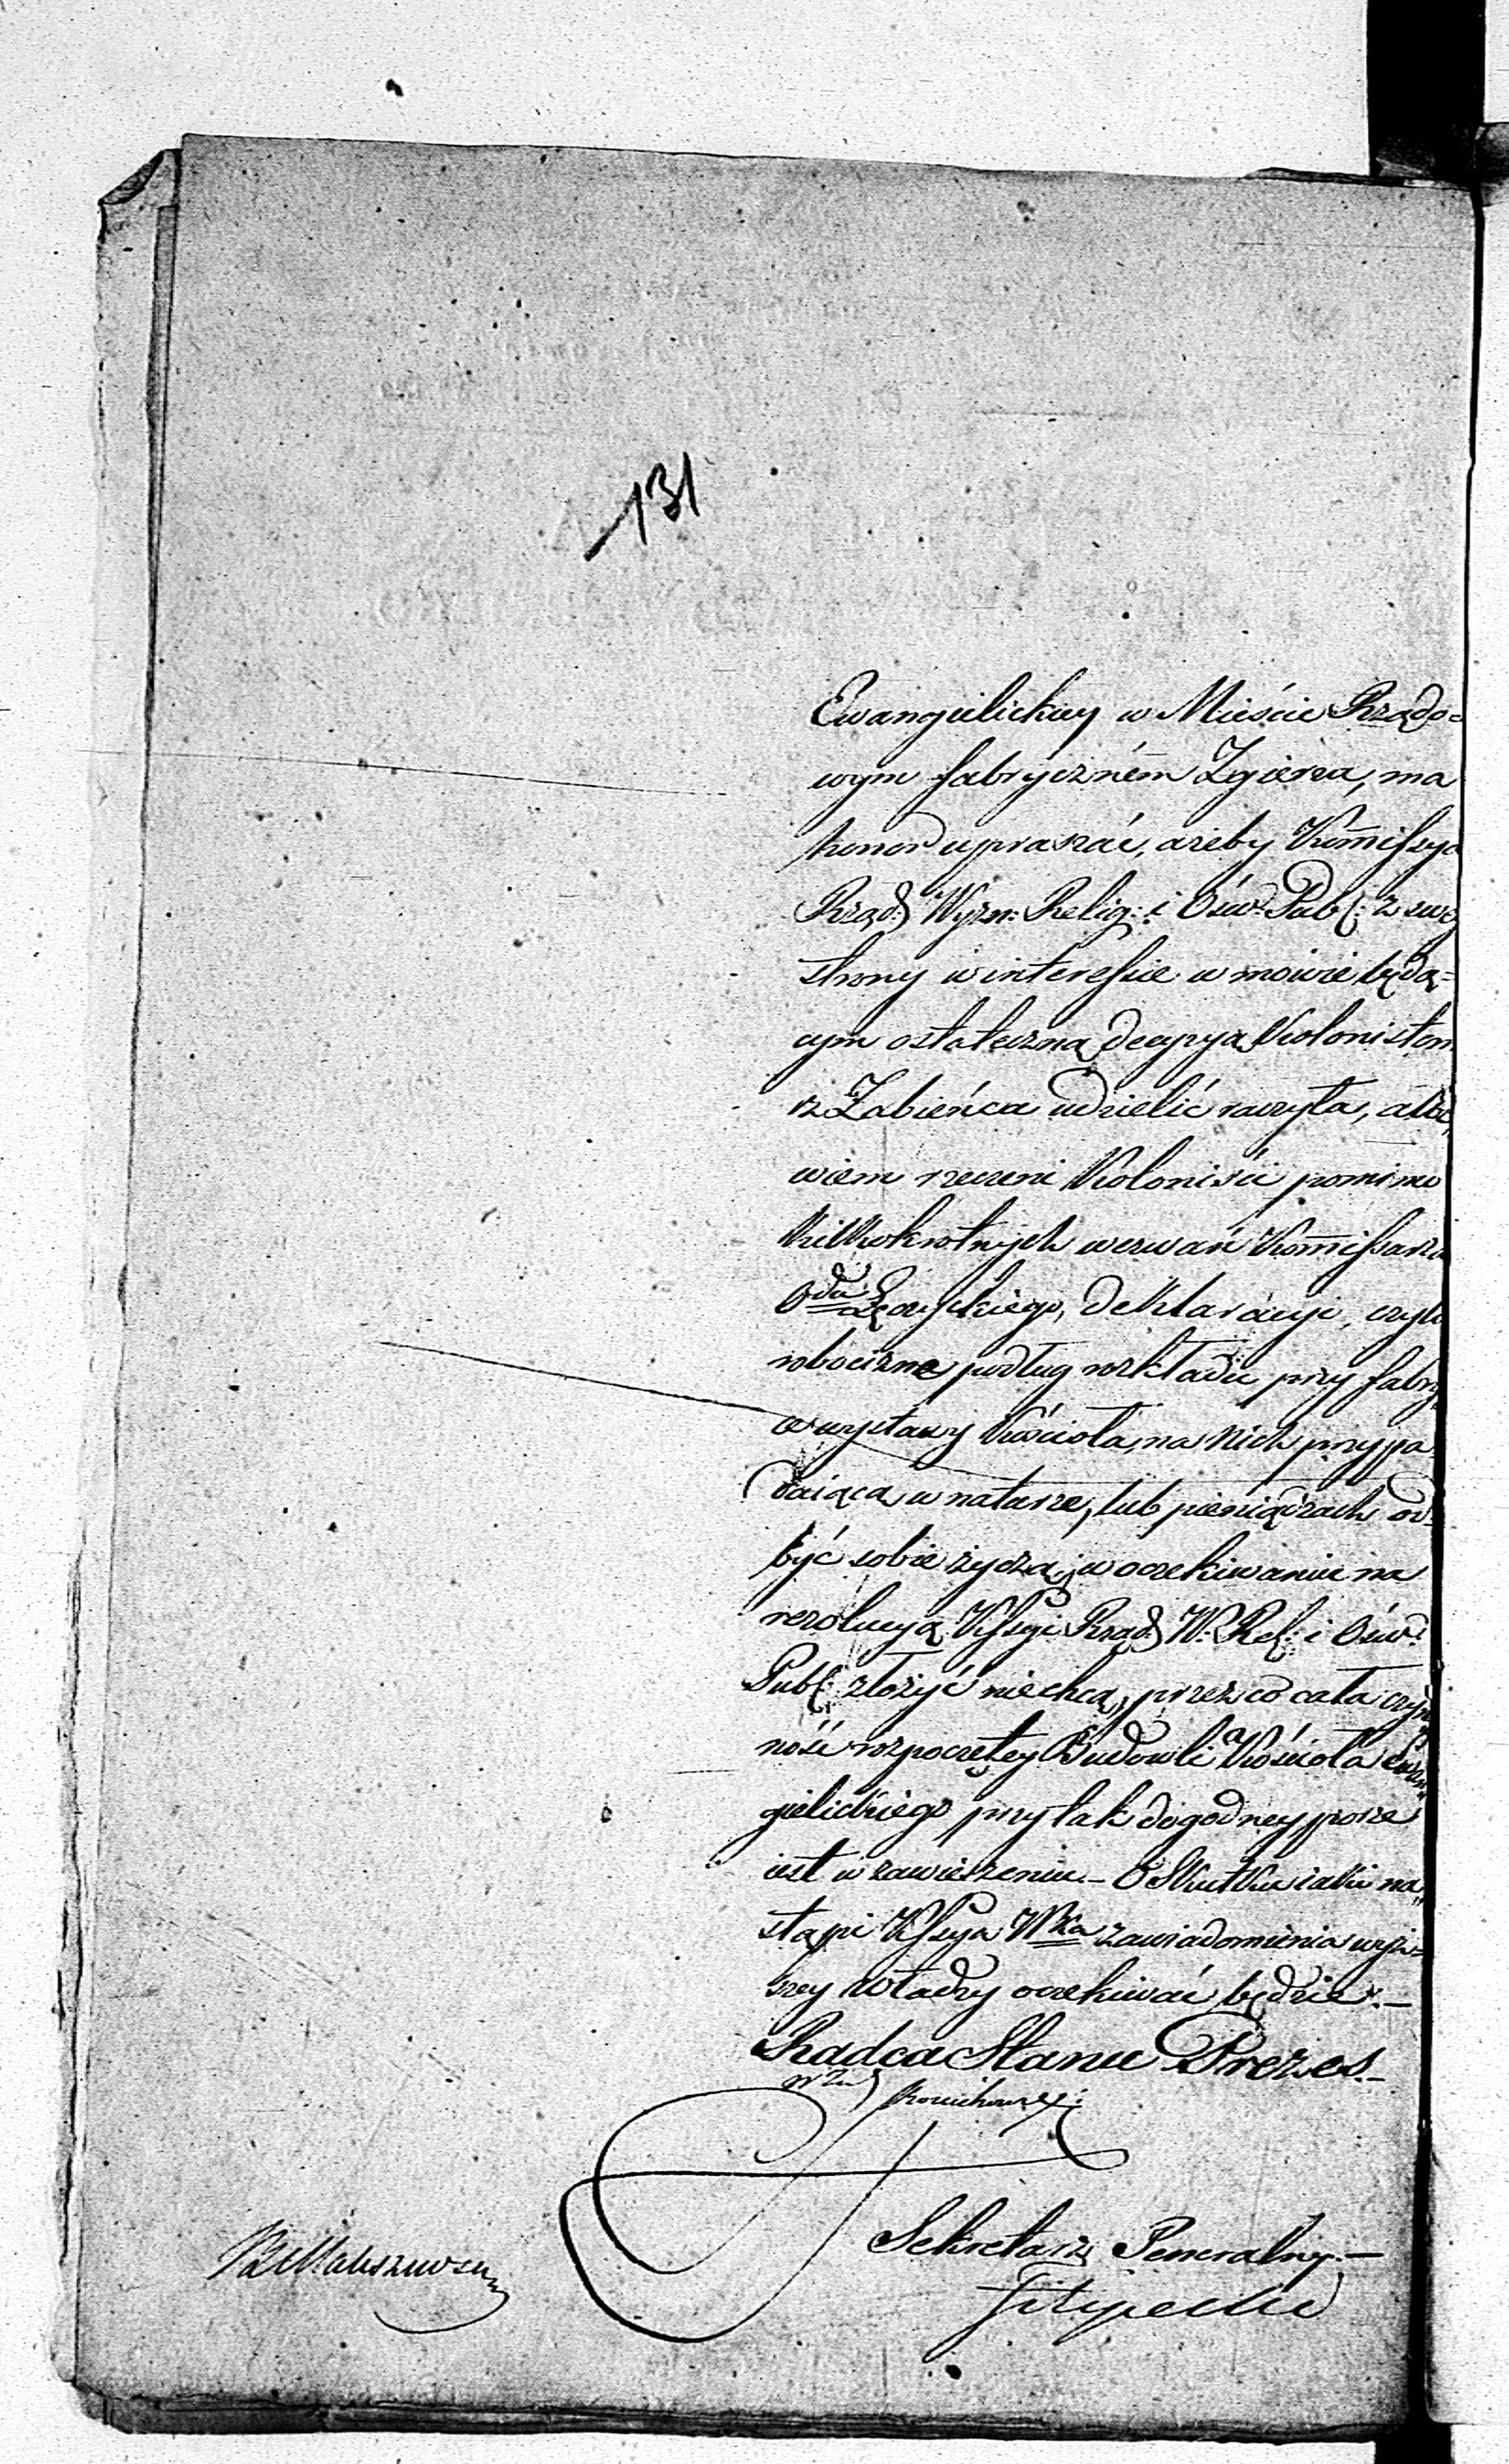 131
Ewangielickiey w Mieście Rządo=
wym fabrycznem Zgierzu, ma
honor upraszać, ażeby Kommissya
Rząd: Wyzn: Relig: i Ośw: Publ: z swey
strony w interessie w mowie będą=
cym ostateczną decyzyą Kolonistom
z Żabieńca udzielić raczyła, albo
wiem rzeczeni Koloniści pomimo
kilkokrotnych wezwań Kommissarza
Odu Łęczyckiego, deklaracyi, czyli
robociznę podług rozkładu przy fabry
ce wystawy Kościoła, na nich przypa
daiącą w naturze, lub pieniądzach od=
być sobie życzą, w oczekiwaniu na
rezolucyą Kssyi Rząd: W: Rel: i Ośw:
Publ: złożyć niechcą, przez co cała czyn
ność rozpoczętey Budowli Kościoła Ewan
gielickiego przy tak dogodney porze
iest w zawieszeniu. – O Skutku iaki na
stąpi Kssya Wka zawiadomienia wyż=
szey Władzy oczekiwać będzie. –
Radca Stanu Prezes. –
w z.
Sekretarz Generalny. –
Filipecki